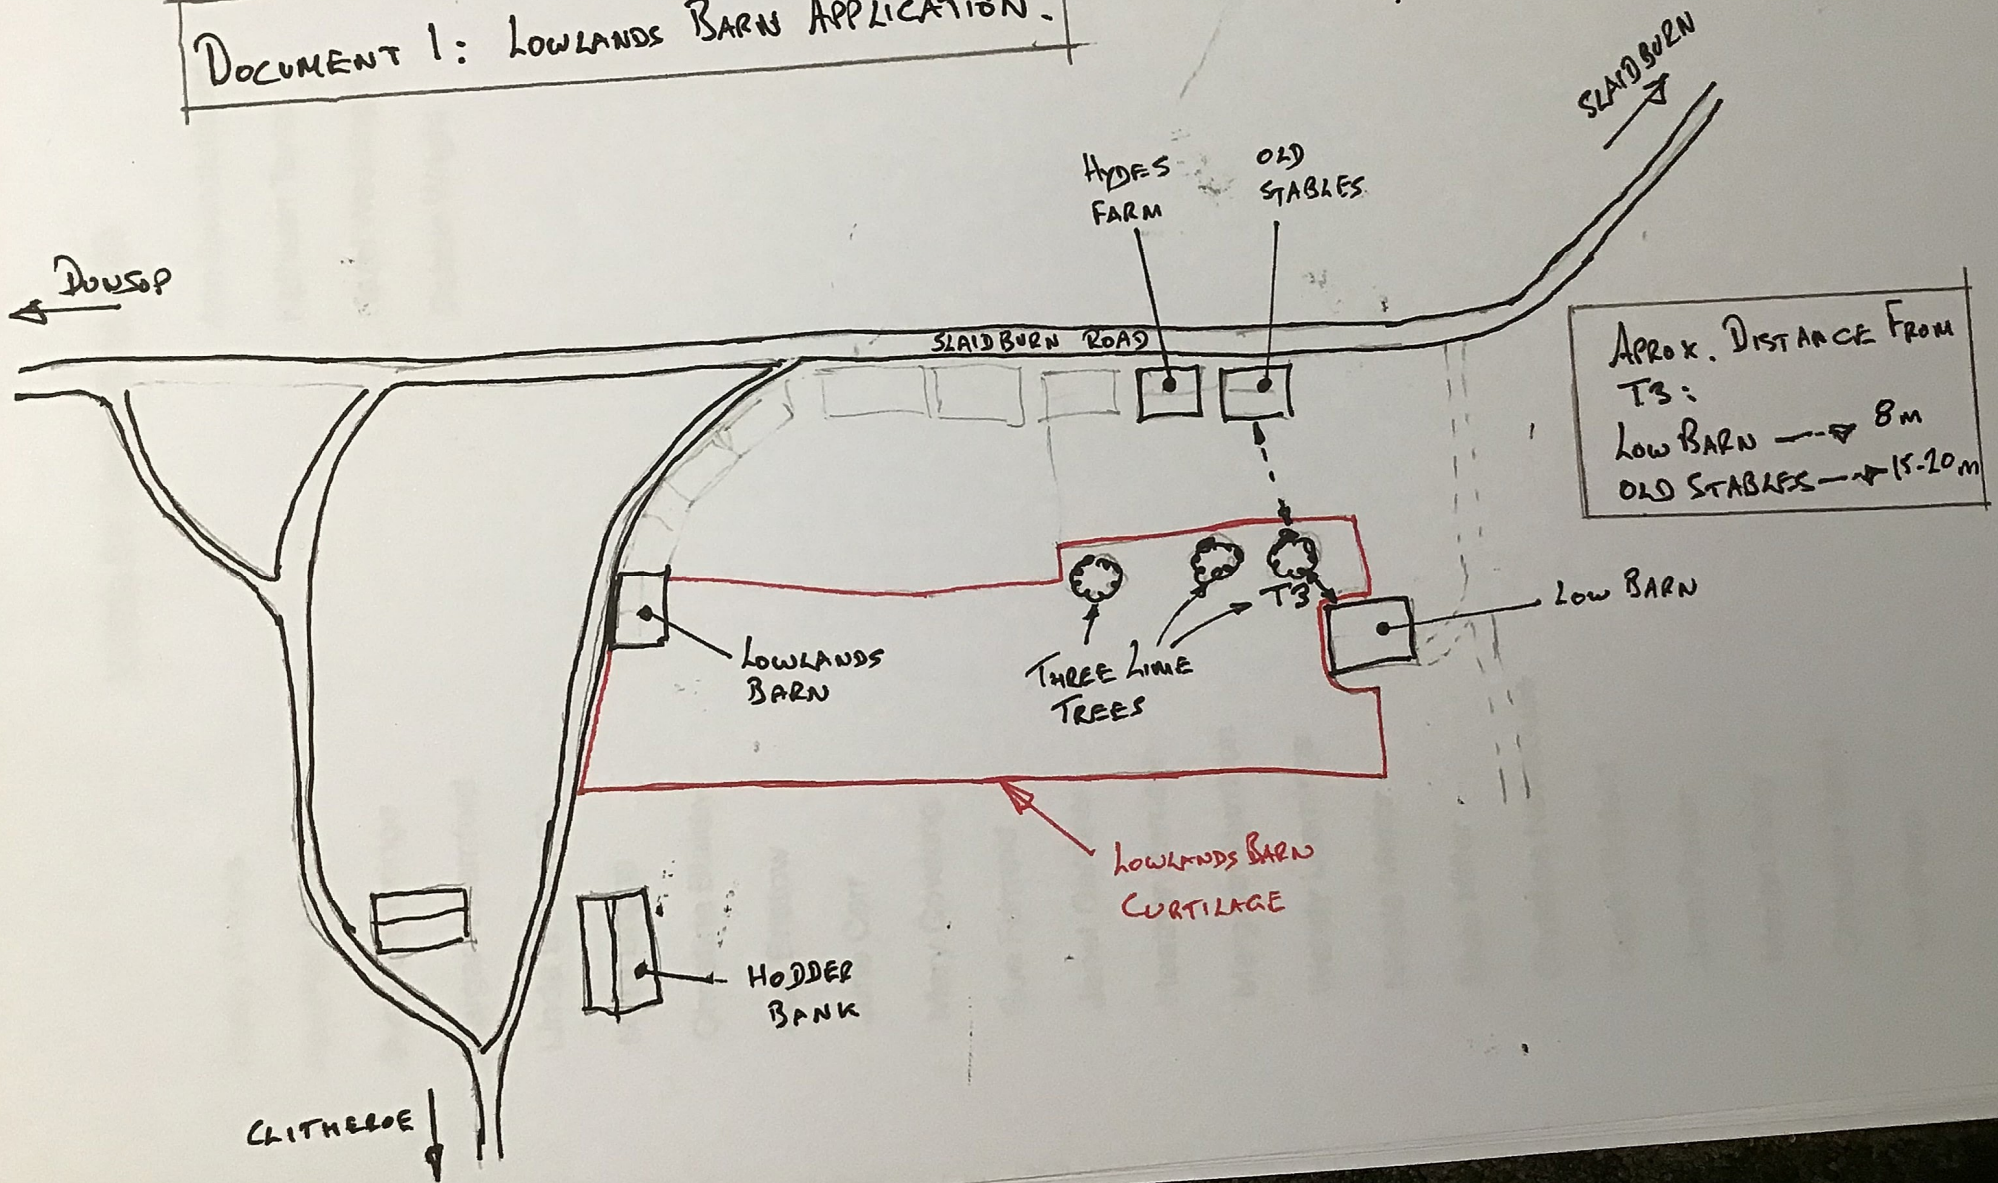 DOCUMENT 1: LOWLANDS BARN APPLICATION.
SLAIDBURN
HYDES
FARM
OLD
STABLES
DUNSOP
SLAIDBURN ROAD
APROX. DISTANCE FROM
T3:
LOW BARN 8m
OLD STABLES 15-20m
T3
LOW BARN
LOWLANDS
BARN
THREE LIME
TREES
LOWLANDS BARN
CURTILAGE
HODDER
BANK
CLITHEROE